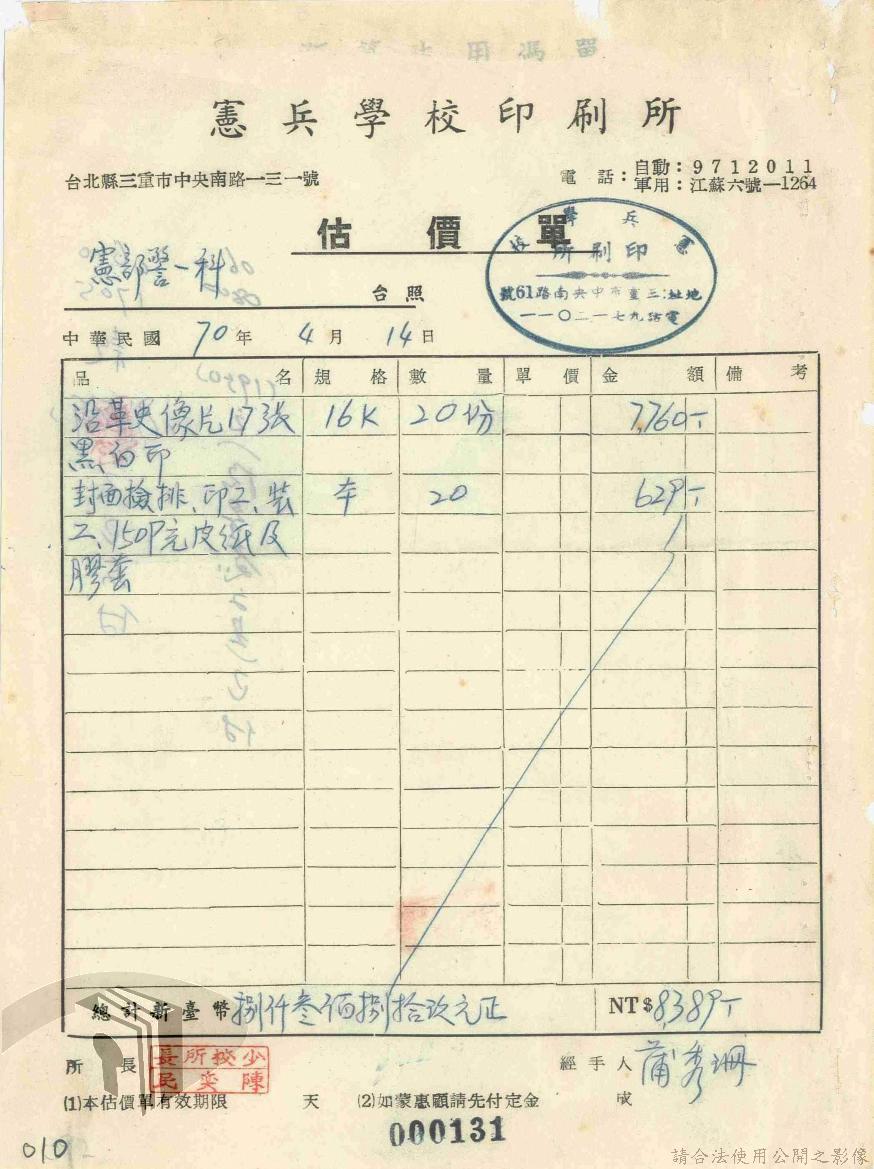 憲兵學校印刷所
台北縣三重市中央南路一三一號
電話：自動：9712011
軍用：江蘇六號—1264
估價單
憲兵學校
印刷所
地址：三重市中央南路61號
電話九七一二〇一一
憲部警一科 台照
中華民國 70 年 4 月 14 日
品名 規格 數量 單價 金額 備考
沿革史像片17張 16K 20份 7,760-
黑白印
封面檢排、印工、裝 本 20 629-
工、150P元皮紙及
膠套
總計新臺幣 捌仟叁佰捌拾玖元正 NT$8,389-
所長 少校所長
陳奕民
經手人 蒲秀珊
(1)本估價單有效期限 天 (2)如蒙惠顧請先付定金 成
000131
010
請合法使用公開之影像